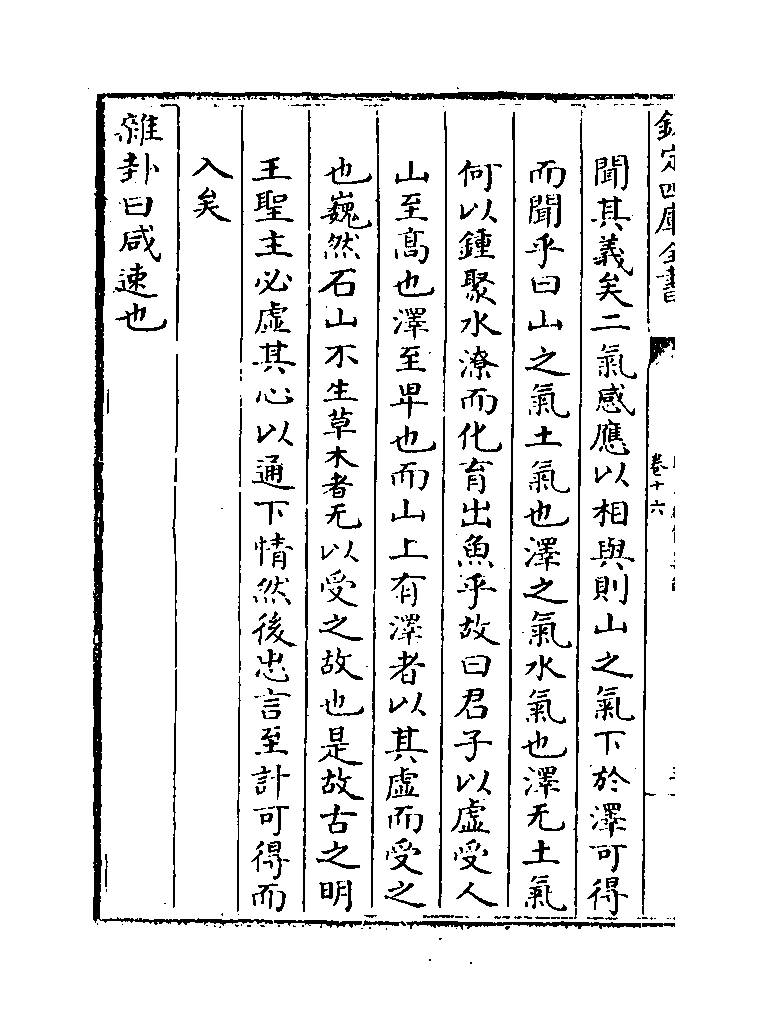 欽定四庫全書
卷十六
聞其義矣二氣感應以相與則山之氣下於澤可得
而聞乎曰山之氣土氣也澤之氣水氣也澤无土氣
何以鍾聚水潦而化育出魚乎故曰君子以虛受人
山至髙也澤至卑也而山上有澤者以其虛而受之
也巍然石山不生草木者无以受之故也是故古之明
王聖主必虛其心以通下情然後忠言至計可得而
入矣
雜卦曰咸速也